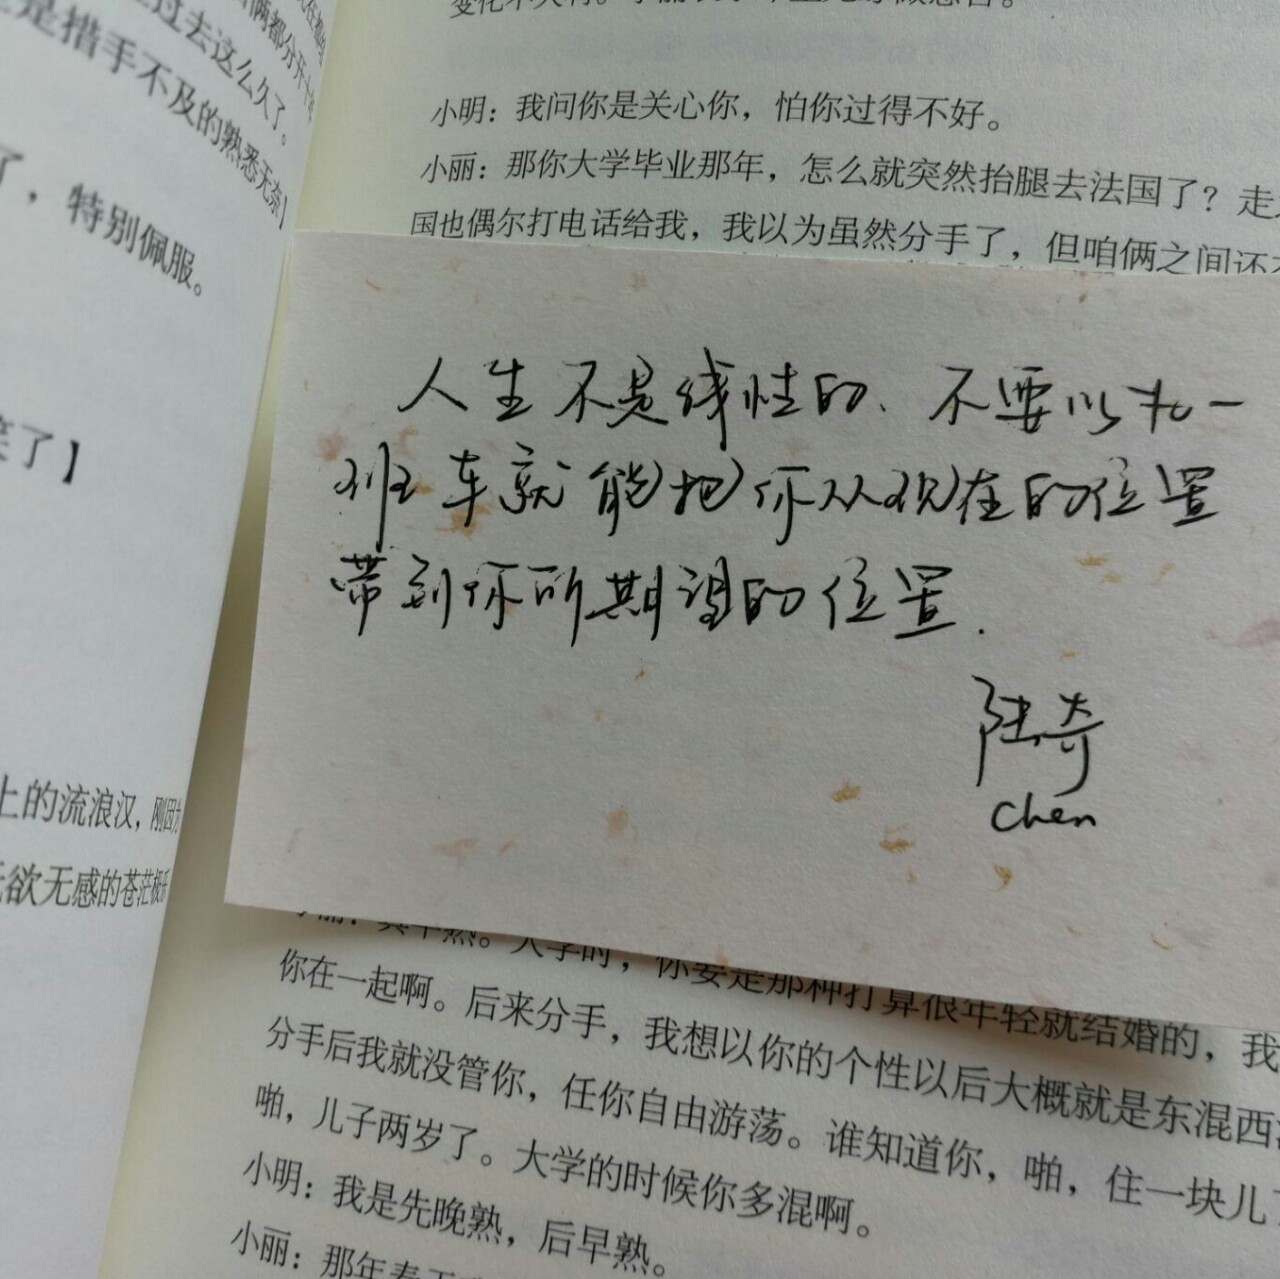 过去这么久了。
是措手不及的熟悉无奈】
了，特别佩服。
笑了】
上的流浪汉，刚因为
无欲无感的苍茫极乐
小明：我问你是关心你，怕你过得不好。
小丽：那你大学毕业那年，怎么就突然抬腿去法国了？走
国也偶尔打电话给我，我以为虽然分手了，但咱俩之间还
人生不是线性的、不要以为一
班车就能把你从现在的位置
带到你所期望的位置.
陆奇
Chen
小丽：真早熟。大学时，你要是那种打算很年轻就结婚的，我
你在一起啊。后来分手，我想以你的个性以后大概就是东混西
分手后我就没管你，任你自由游荡。谁知道你，啪，住一块儿
啪，儿子两岁了。大学的时候你多混啊。
小明：我是先晚熟，后早熟。
小丽：那年春